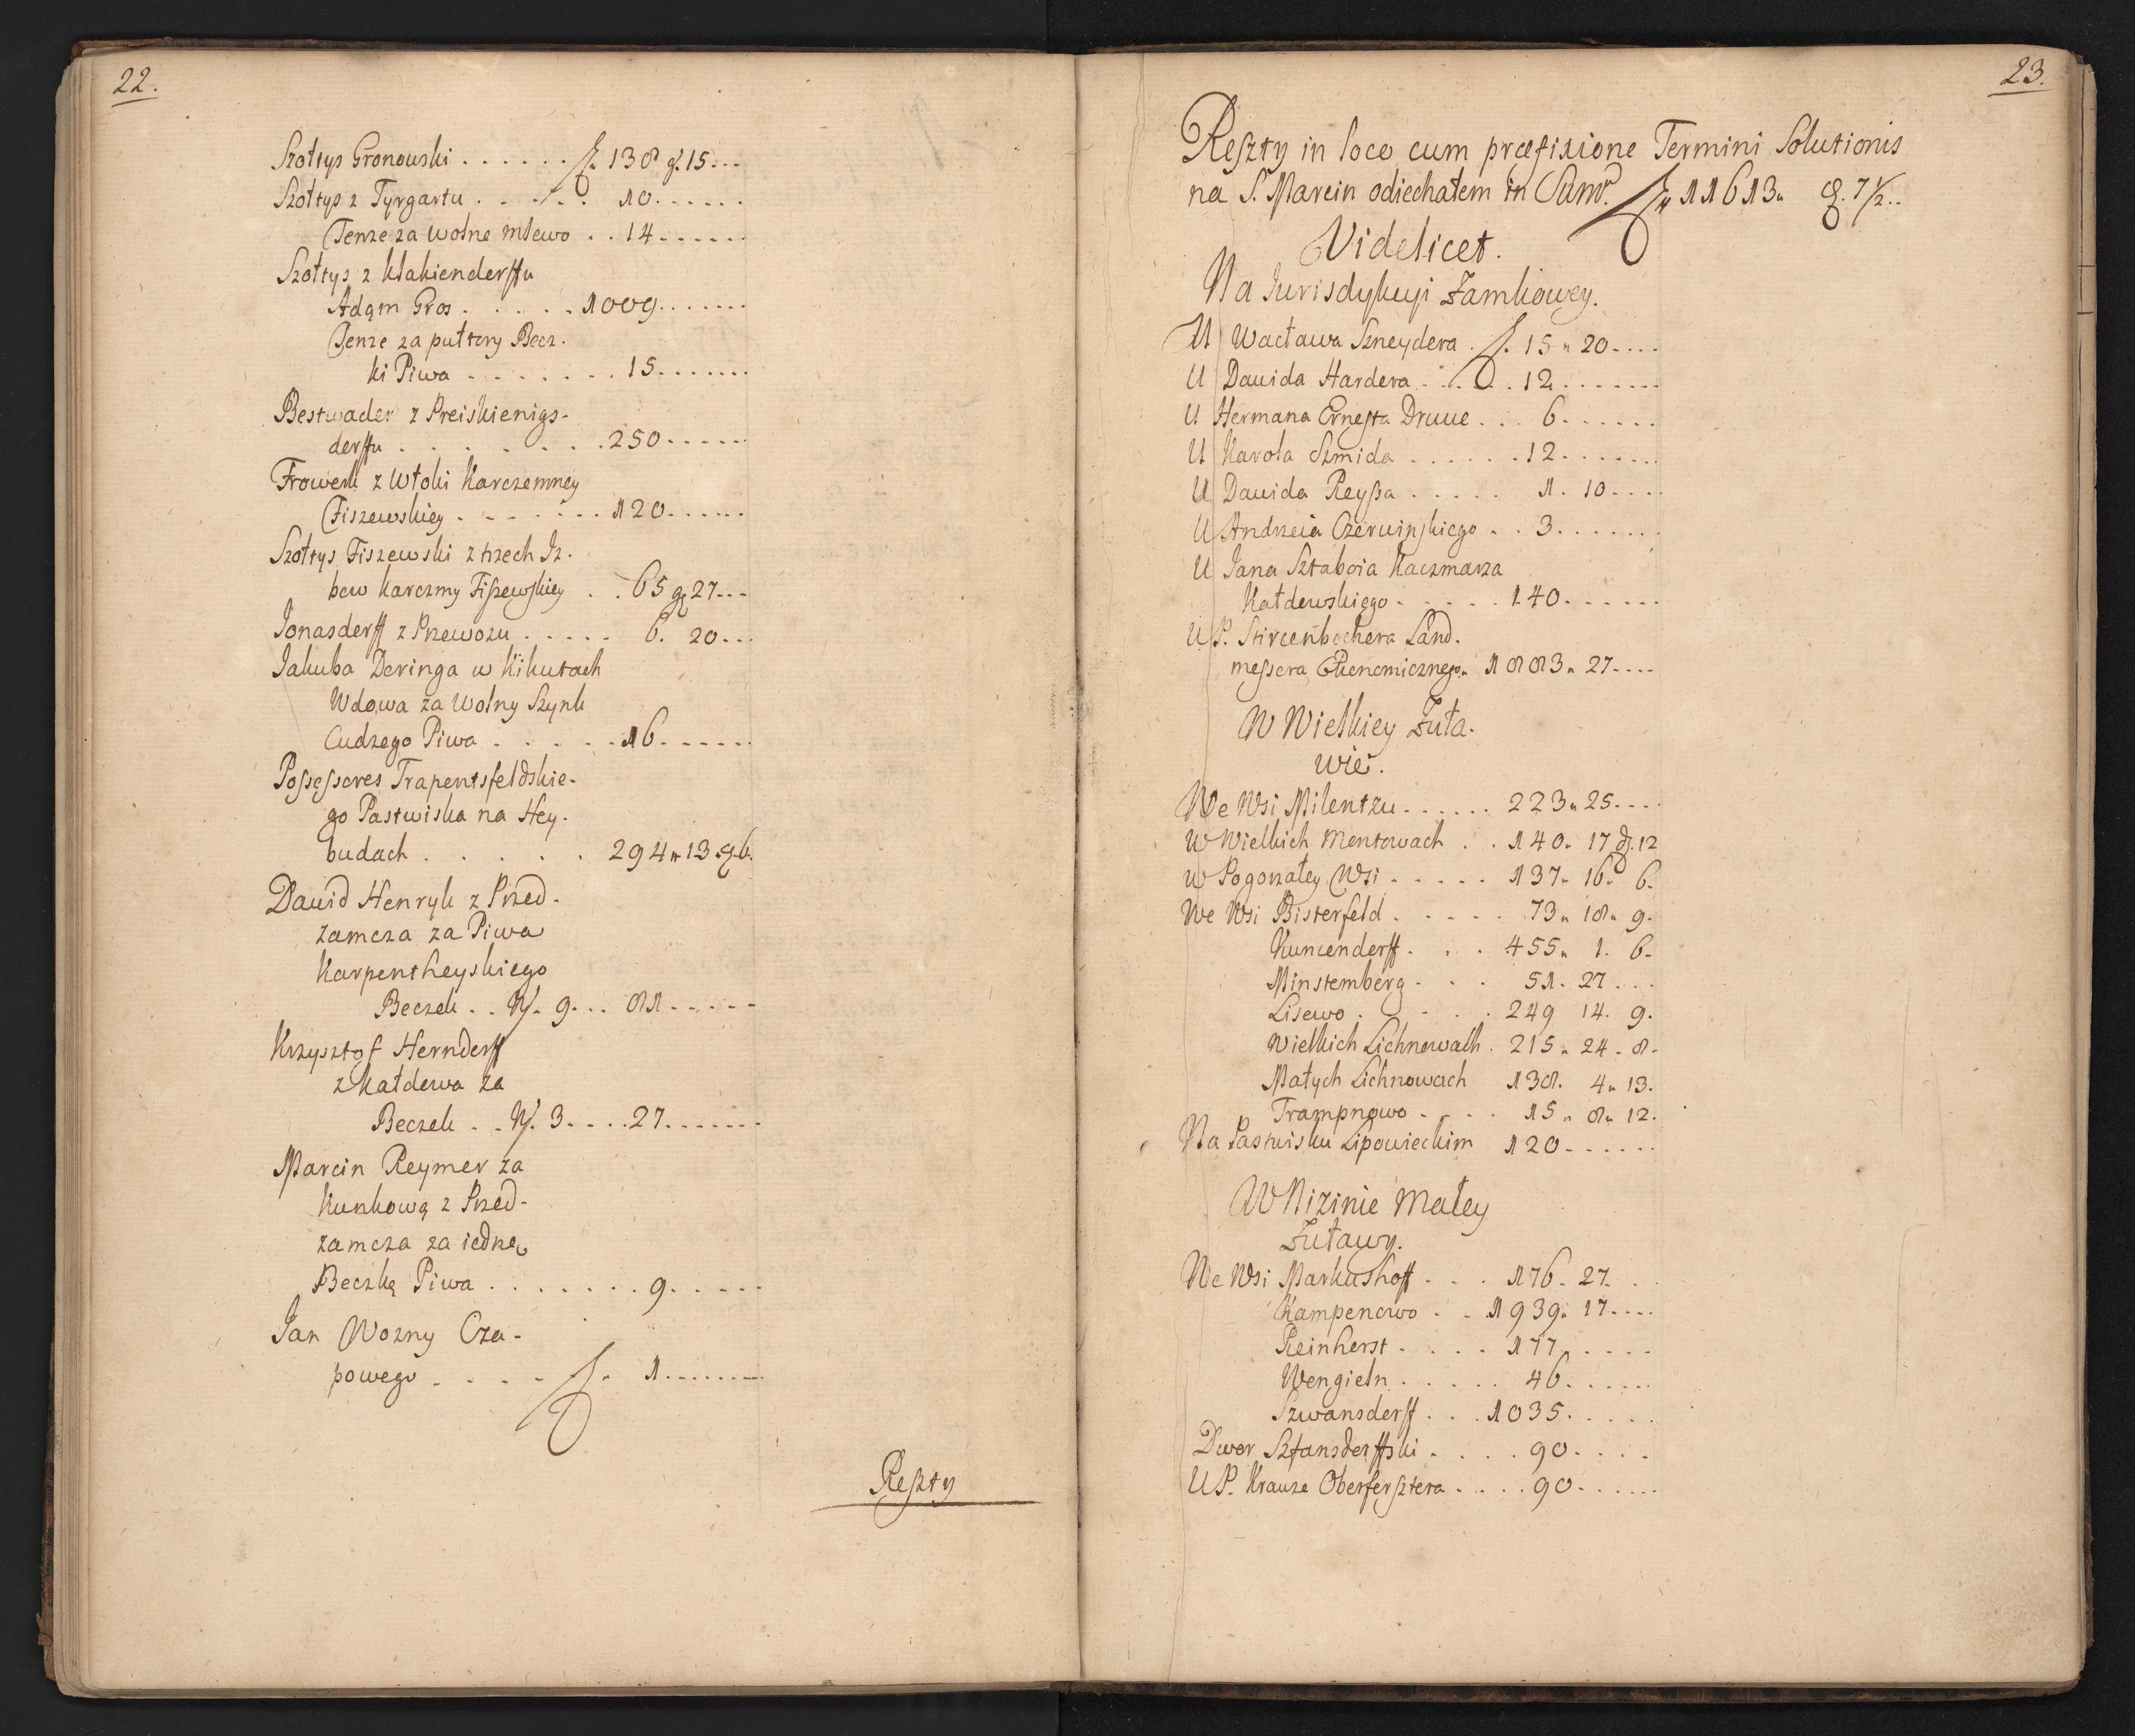 22.
Szołtys Gronowski . . . . . . f. 138 g. 15 - - -
Szołtys z Tyrgartu . . . . . 10 . . . . . .
Tenze za wolne mlewo . . 14 . . . . . .
Szołtys z Klakiendorffu
Adąm Gros . . . . . 1009 . . . . . . .
Tenze za pułtory Becz-
ki Piwa . . . . . . . 15 . . . . . . .
Bestwader z Preiskienigs-
dorffu . . . . . . . . 250 - - - - - -
Frowerk z Wtoki Karczemney
Fiszewskiey . . . . . . . 120 . . . . . .
Szołtys Fiszewski z trzech Iz-
bow Karczmy Fiszewskiey . . 65 g 27 - - -
Jonasdorff z Przewozu . . . . . 6. 20 . . .
Jakuba Deringa w Kikutach
Wdowa za Wolny Szynk
Cudzego Piwa . . . . . 16 . . . . . .
Possessores Trapentsfeldskie-
go Pastwiska na Hey-
budach . . . . . . 294 " 13 . 9. 6.
Dawid Henryk z Przed-
zamcza za Piwa
Karpentheyskiego
Beczek . . N. 9 . . . 81 - - - - -
Krzysztof Herndorff
z Kałdowa za
Beczek . . N. 3 . . . . 27 . . . . . . .
Marcin Reymer za
Kunkową z Przed-
zamcza za iednę
Beczkę Piwa . . . . . . . 9 . . . . .
Jan Wozny Cza-
powego . . . . . f. " 1 . . . . . . .
Reszty
23.
Reszty in loco cum præfixione Termini Solutionis
na S. Marcin odiechałem in Sum. f " 11613 " g. 7 1/2 . .
Videlicet.
Na Jurisdykcyi Zamkowey.
U Wacława Szneydera . f. 15 " 20 . . . .
U Dawida Hardera . . . . . 12 . . . . . . .
U Hermana Ernesta Druue . . . 6 . . . . . .
U Karola Szmida . . . . . . 12 . . . . . . .
U Dawida Reyßa . . . . . 1. 10 . . . .
U Andrzeia Czerwinskiego . . 3 . . . . . . .
U Jana Sztaboia Kaczmarza
Kałdowskiego . . . . . 140 . . . . . .
U P. Stircenbechera Land-
messera Ekonomicznego " 1883 " 27 . . . .
W Wielkiey Zuła-
wie.
We Wsi Milentzu . . . . . . 223 " 25 . . . .
W Wielkich Montowach . . 140 " 17 g. 12
w Pogorzałey Wsi . . . . . 137 " 16 " 6.
We Wsi Bisterfeld . . . . . 73 " 18 " 9.
Kuncendorff . . . 455 " 1. 6.
Minstemberg . . . 51. 27 . . .
Lisewo . . . . . 249 14. 9.
Wielkich Lichnowach . 215 " 24 . 8.
Małych Lichnowach 138. 4 " 13.
Trampnowo . . . . 15 " 8 " 12.
Na Pastwisku Lipowieckim 120 . . . . . .
W Nizinie Małey
Zuławy.
We Wsi Markushoff . . . 176. 27. . .
Kampenowo . . 1939. 17 . . . .
Reinhorst . . . . 177 . . . . .
Wengieln . . . . . 46 . . . . . .
Szwansdorff . . . 1035 . . . . .
Dwor Sztansdorffski . . . . 90 . . . .
U P. Krauze Oberfersztera . . . . 90 . . . . . .